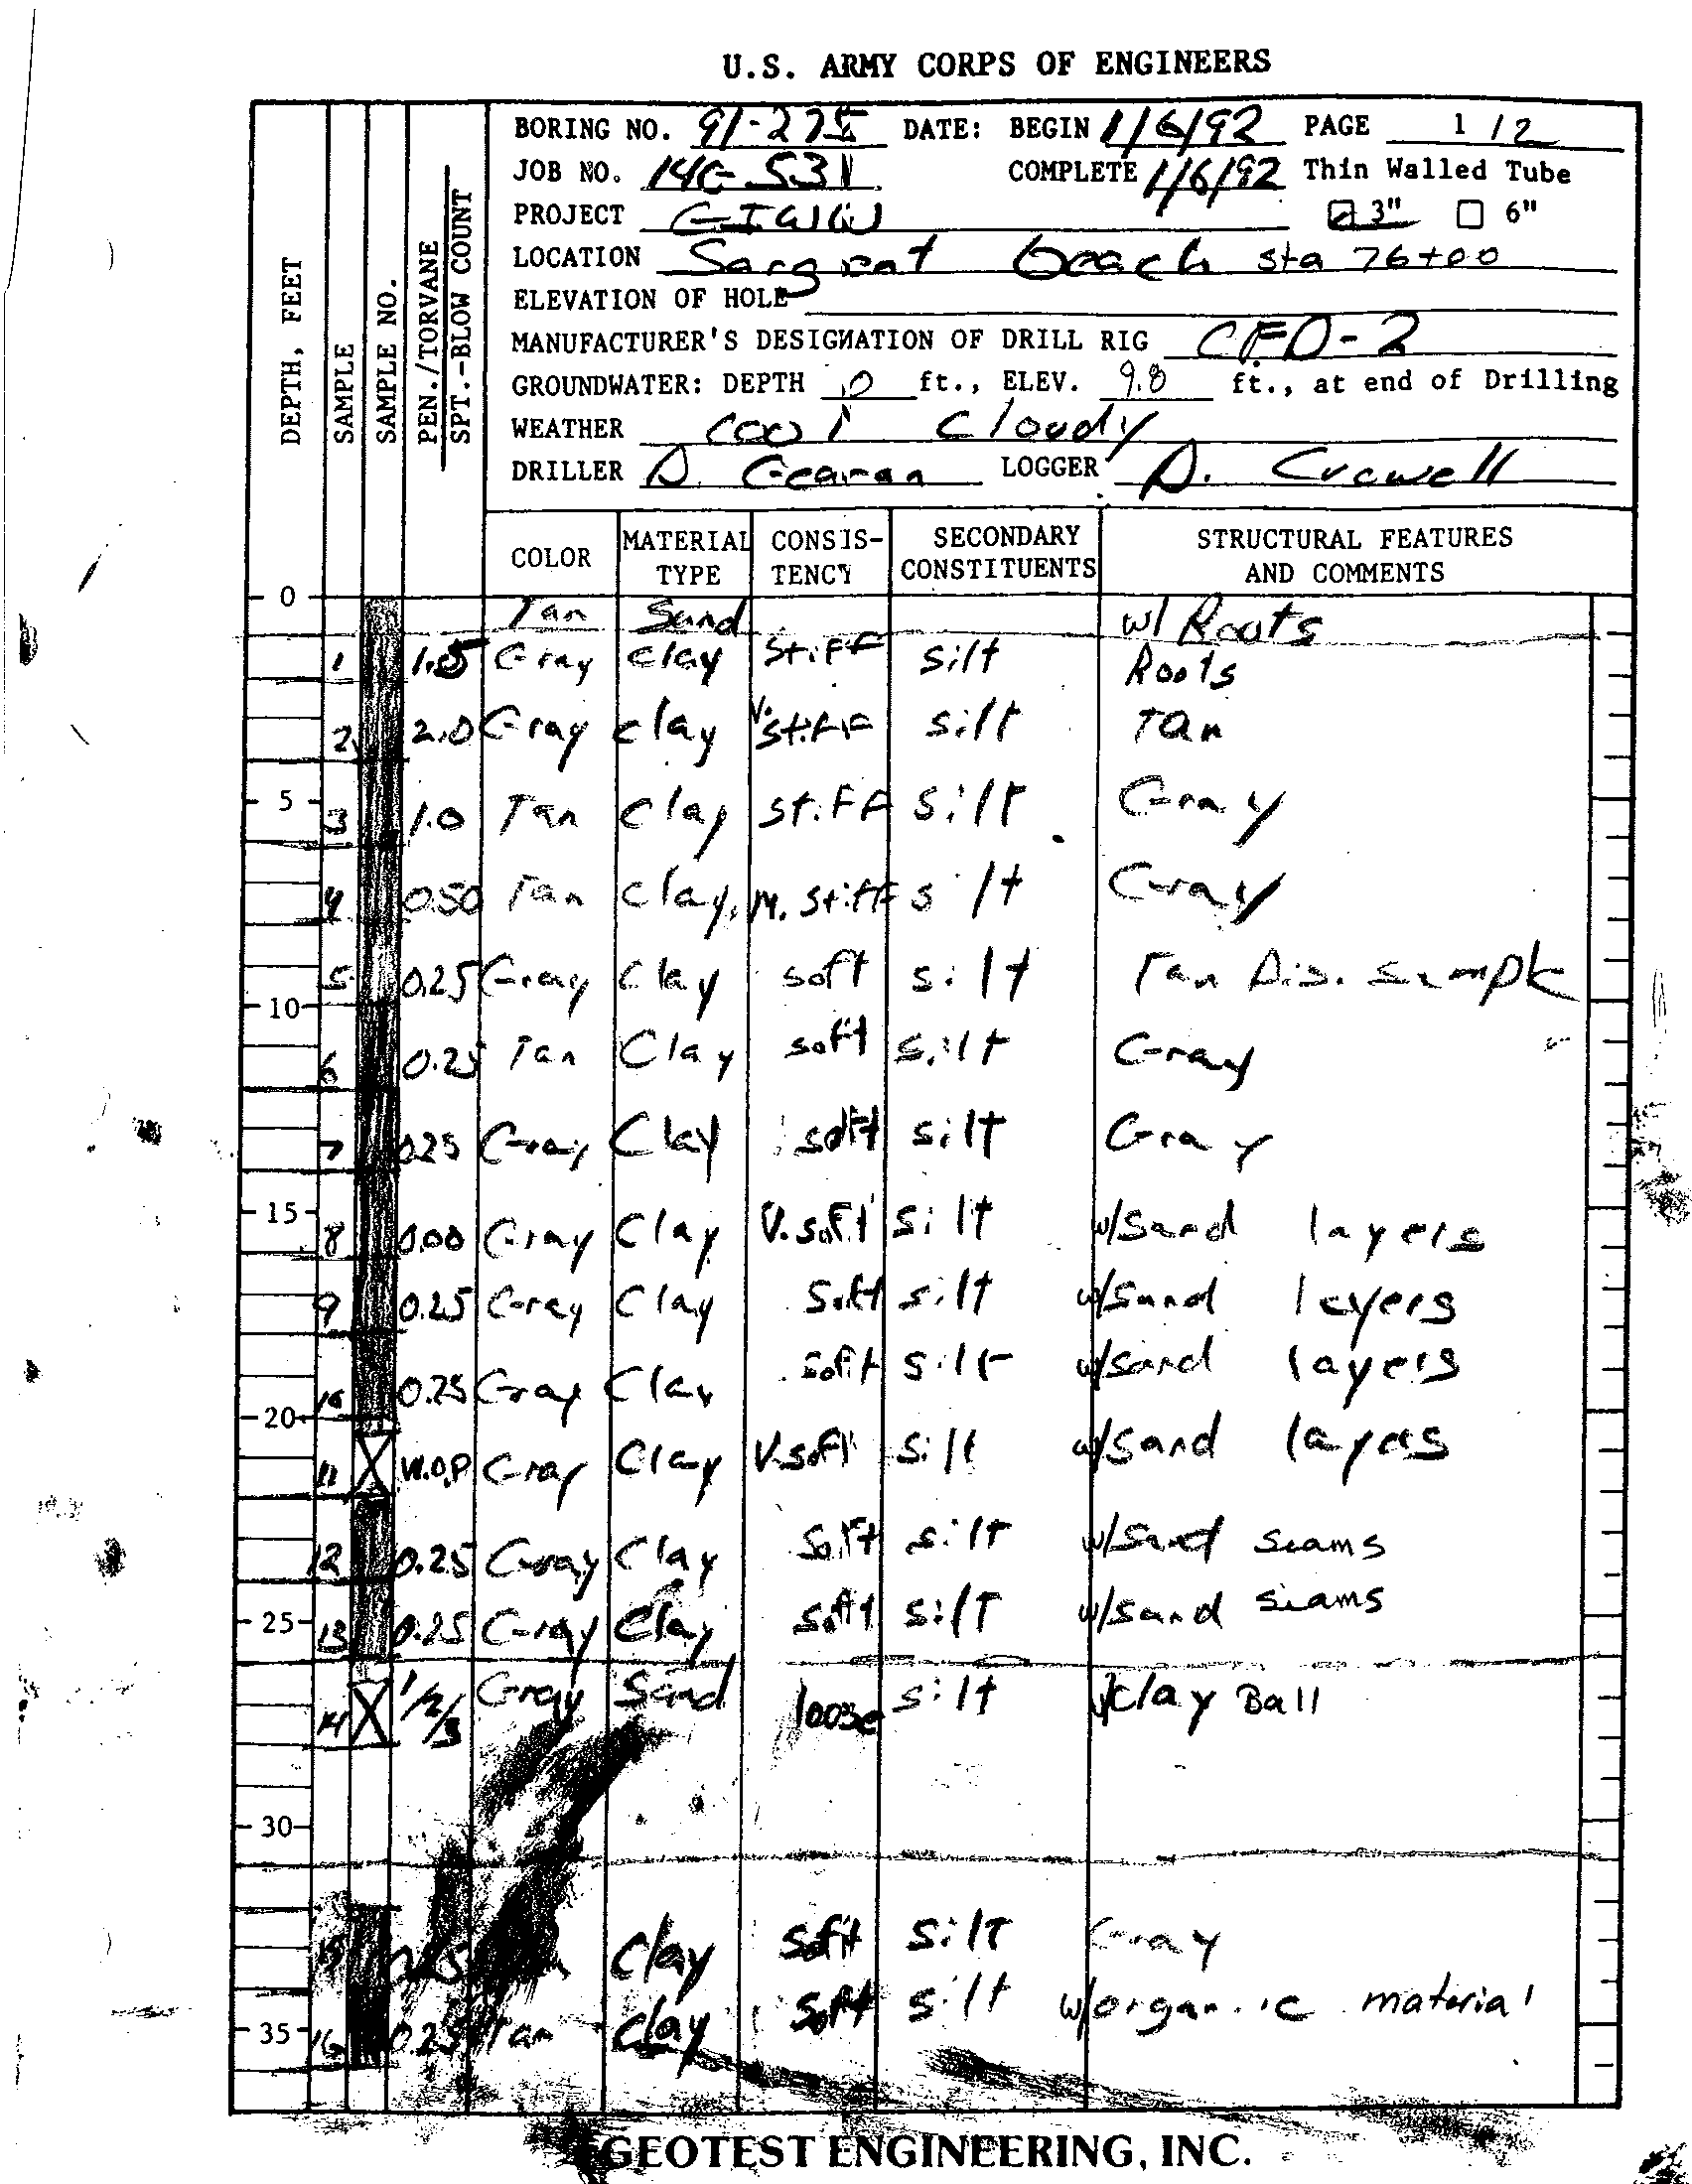 U.S. ARMY CORPS OF ENGINEERS
BORING NO. 91-275 DATE: BEGIN 1/6/92 PAGE 1 / 2
JOB NO. COMPLETE 1/6/92 Thin Walled Tube
PROJECT GIWW 3" 6"
LOCATION Sargent beach sta 76+00
ELEVATION OF HOLE
MANUFACTURER'S DESIGNATION OF DRILL RIG CFD-2
GROUNDWATER: DEPTH ft., ELEV. 9.8 ft., at end of Drilling
WEATHER cool Cloudy
DRILLER D. LOGGER D.
DEPTH, FEET
SAMPLE
SAMPLE NO.
PEN./TORVANE
SPT.-BLOW COUNT
COLOR MATERIAL TYPE CONSIS-TENCY SECONDARY CONSTITUENTS STRUCTURAL FEATURES AND COMMENTS
0 Tan Sand w/ Roots
1 Gray clay Stiff silt Roots
2 2.0 Gray clay V. stiff silt Tan
5 3 1.0 Tan Clay stiff silt Gray
4 0.50 Tan Clay M. stiff silt Gray
5 0.25 Gray Clay soft silt Tan Dis. Sample
10
6 0.25 Tan Clay soft silt Gray
7 0.25 Gray Clay soft silt Gray
15
8 0.00 Gray Clay V. soft silt w/sand layers
9 0.25 Gray Clay Soft silt w/sand layers
10 0.25 Gray Clay soft silt w/sand layers
20
11 W.O.P Gray Clay V. soft silt w/sand layers
12 0.25 Gray Clay Soft silt w/sand seams
25 13 0.25 Gray Clay soft silt w/sand seams
14 1/2/3 Gray Sand loose silt w/clay Ball
30
15 Clay soft silt Gray
35 16 0.25 Tan clay soft silt w/organic material
GEOTEST ENGINEERING, INC.